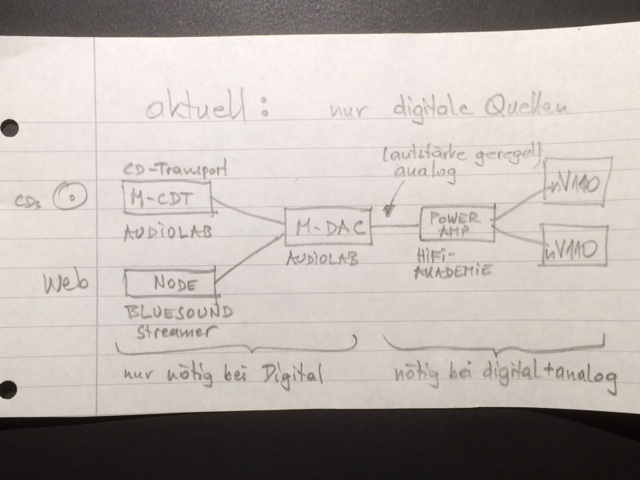 aktuell: nur digitale Quellen
CD-Transport
(lautstärke geregelt)
analog
CDs
M-CDT
AUDIOLAB
M-DAC
AUDIOLAB
POWER
AMP
HiFi-
AKADEMIE
nV110
nV110
Web
NODE
BLUESOUND
Streamer
nur nötig bei Digital
nötig bei digital+analog